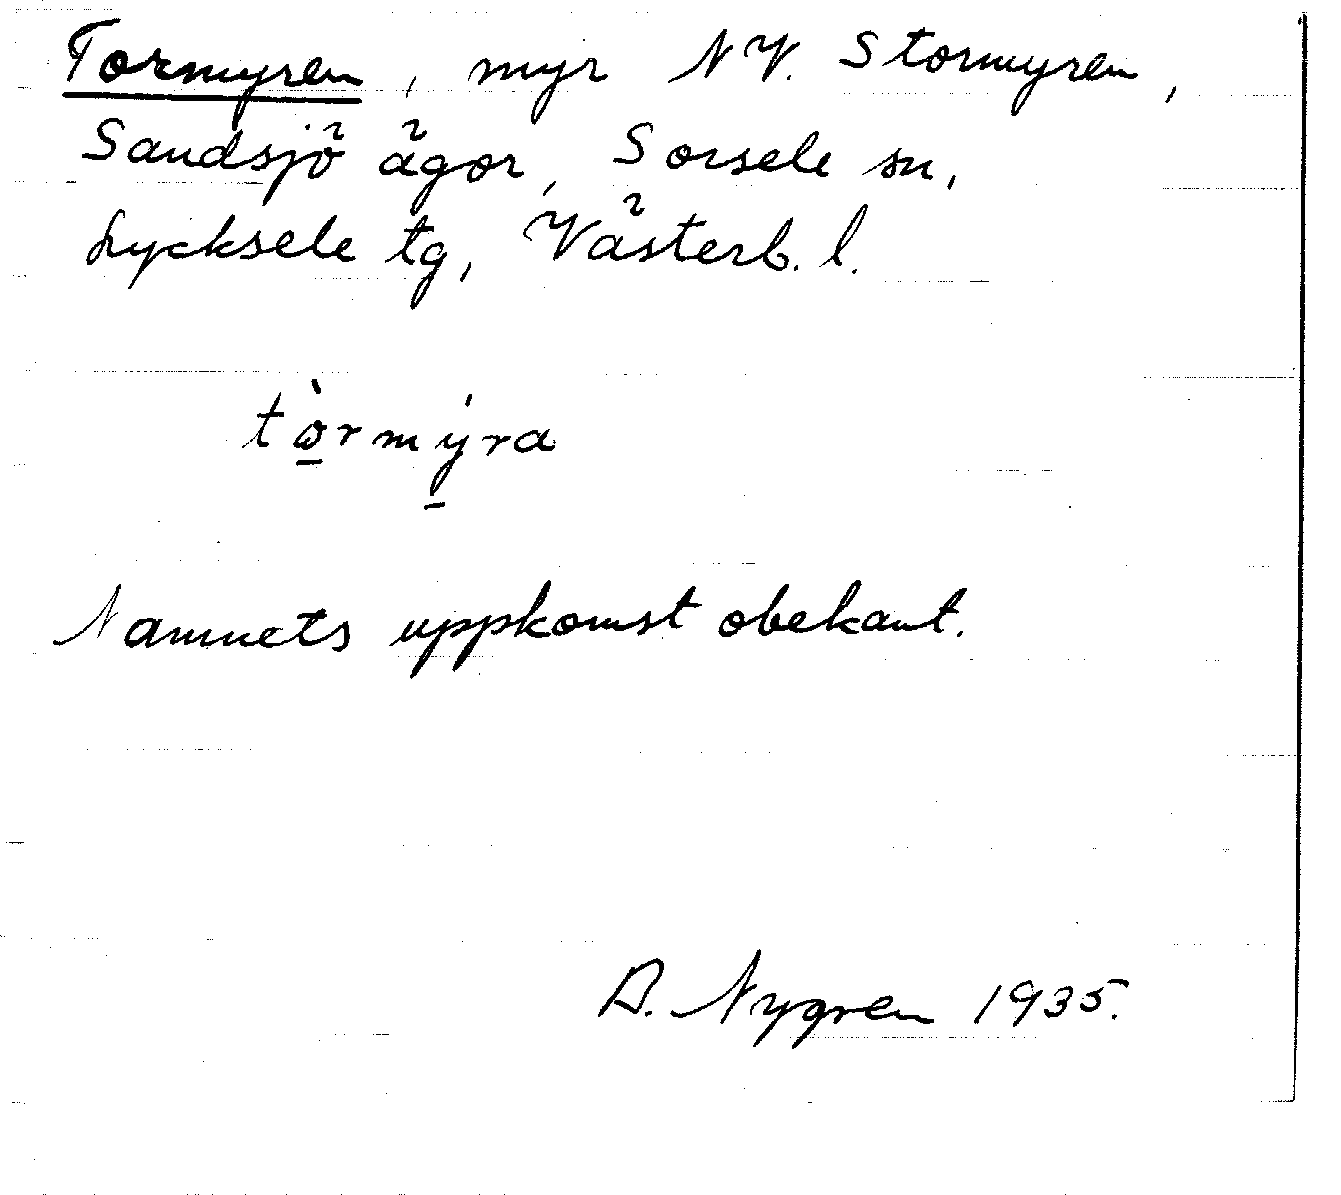 Tormyren, myr NV. Stormyren,
Sandsjö ägor, Sorsele sn,
Lycksele tg, Västerb. l.
tò̱rmý̱ra
Namnets uppkomst obekant.
A. Nygren 1935.